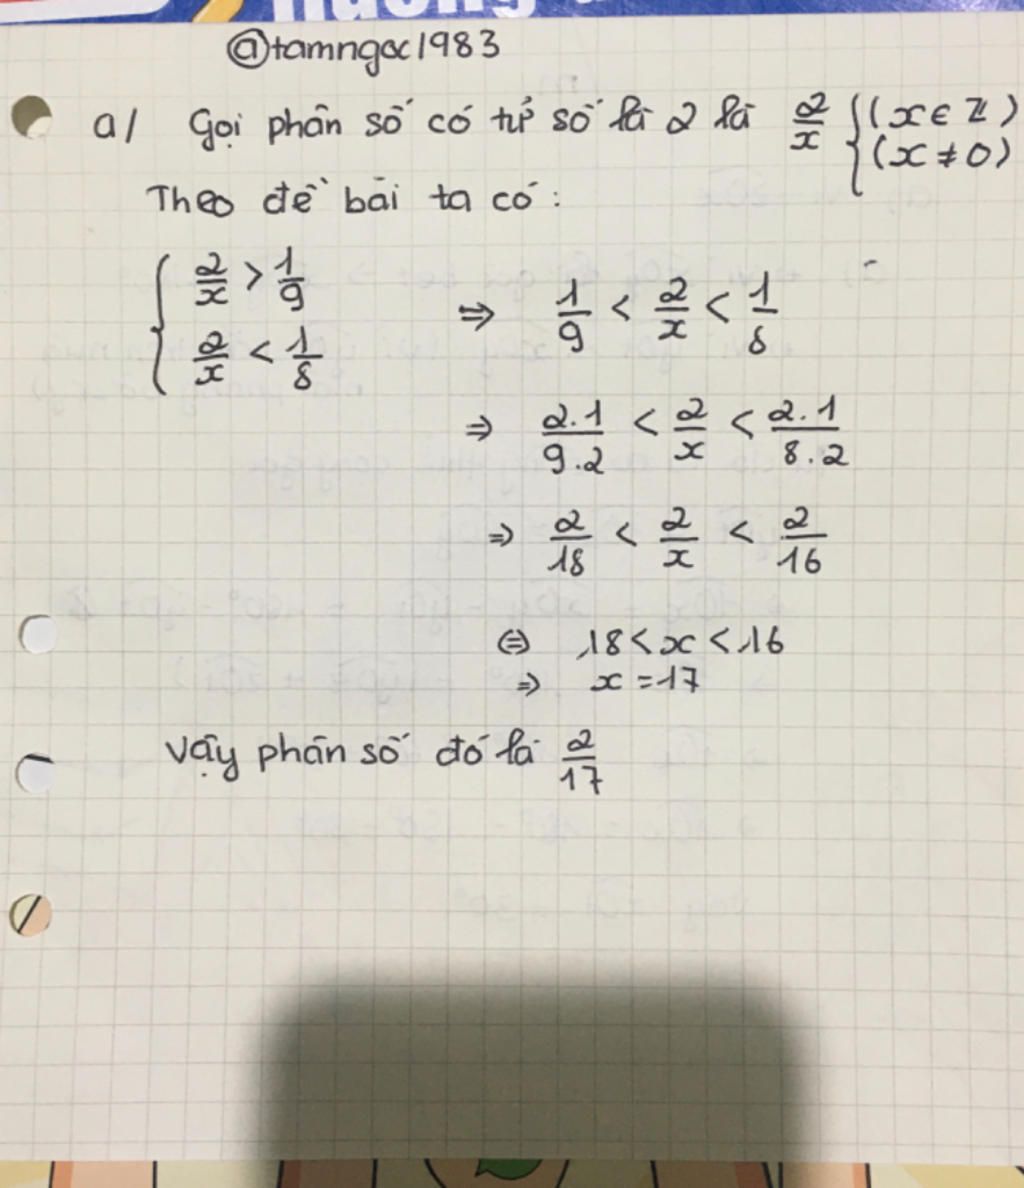 @tamngoc1983
a/ Gọi phân số có tử số là 2 là 2/x { (x ∈ Z) (x ≠ 0)
Theo đề bài ta có:
{ 2/x > 1/9
2/x < 1/8
⇒ 1/9 < 2/x < 1/8
⇒ 2.1/9.2 < 2/x < 2.1/8.2
⇒ 2/18 < 2/x < 2/16
⇔ 18 < x < 16
⇒ x = 17
Vậy phân số đó là 2/17